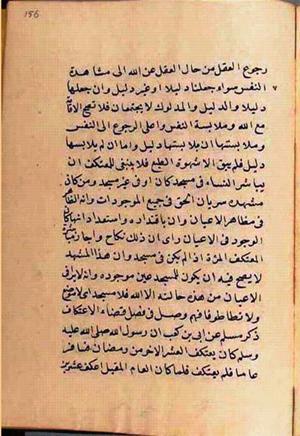 156
رجوع العقل من حال العقل عن الله الى مشاهدة
النفس سواء جعلنا دليلا او غير دليل وان جعلها
دليلا والدليل والمدلول لا يجتمعان فلا تصح الاقامة
مع الله وملابسة النفس واعلى الرجوع الى النفس
وملابستها ان يلابسها دليلا واما ان لم يلابسها
دليل فلم يبق الا شهوة الطبع فلا ينبغي للمعتكف ان
يباشر النساء في مسجد كان او في غير مسجد ومن كان
مشهده سريان الحق في جميع الموجودات وانه الظاهر
في مظاهر الاعيان وان باقتداره واستعداداتها كان
الوجود في الاعيان راى ان ذلك نكاح واجاز مباشرة
المعتكف المرة اذ لم يكن في مسجد وان هذا المشهد
لا يصح فيه ان يكون للمسجد عين موجودة وانه لا يرى في
الاعيان من هذه حالته الا الله فلا مسجد اي لا موضع
ولا تطاطو فافهم وصل في فصل قضاء الاعتكاف
ذكر مسلم عن ابي بن كعب ان رسول الله صلى الله عليه
وسلم كان يعتكف العشر الاخر من رمضان فسافر
عاما فلم يعتكف فلما كان العام المقبل اعتكف عشرين